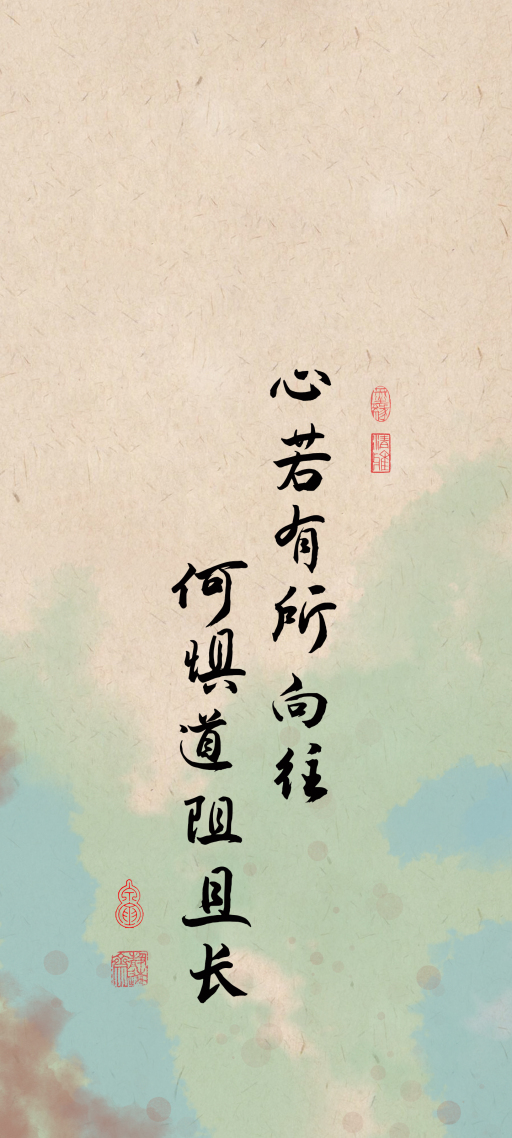 心若有所向往
何惧道阻且长